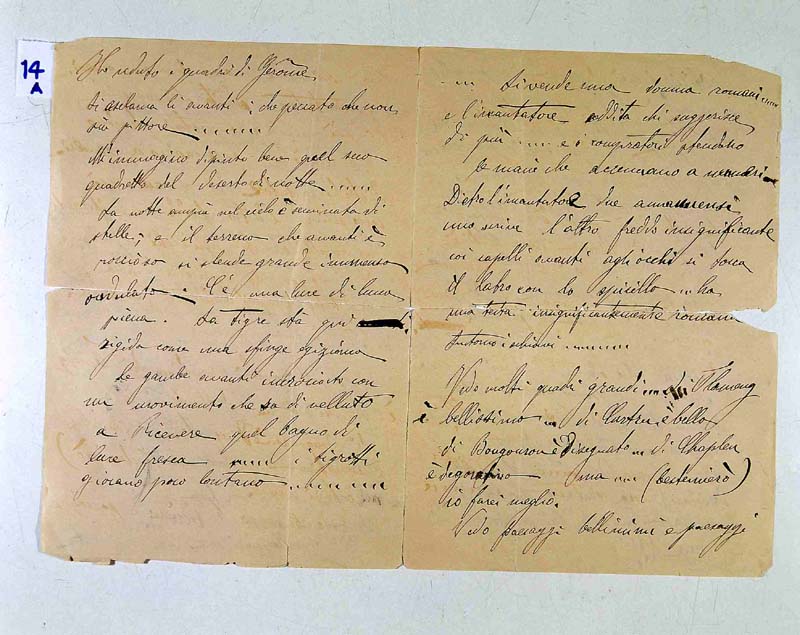 14
A
Ho veduto i quadri di Gérôme
Si esclama lì avanti: che peccato che non
sia pittore ........
M'immagino dipinto bene quel suo
quadretto del deserto di notte .....
La notte ampia nel cielo è seminata di
stelle; e il terreno che avanti è
roccioso si stende grande immenso
ondulato. C'è una luce di luna
piena. La tigre sta qui
rigida come una sfinge egiziana
le gambe avanti incrociate con
un movimento che sa di velluto
a ricevere quel bagno di
luce fresca ..... i tigrotti
giocano poco lontano ........
.... Si vende una donna romana ....
e l'incantatore addita chi suggerisce
di più .... e i compratori stendono
le mani che accennano a numeri
Dietro l'incantatore due amanuensi
uno scrive l'altro freddo insignificante
coi capelli avanti agli occhi si tocca
il labro con lo spicillo .. ha
una testa insignificantemente romana
Intorno i schiavi .......
Vedo molti quadri grandi ... di Flameng
è bellissimo ... di è bello
di è disegnato ... di Chaplen
è degorativo ma .... (bestemierò)
io farei meglio.
Vedo paesaggi bellissimi e paesaggi